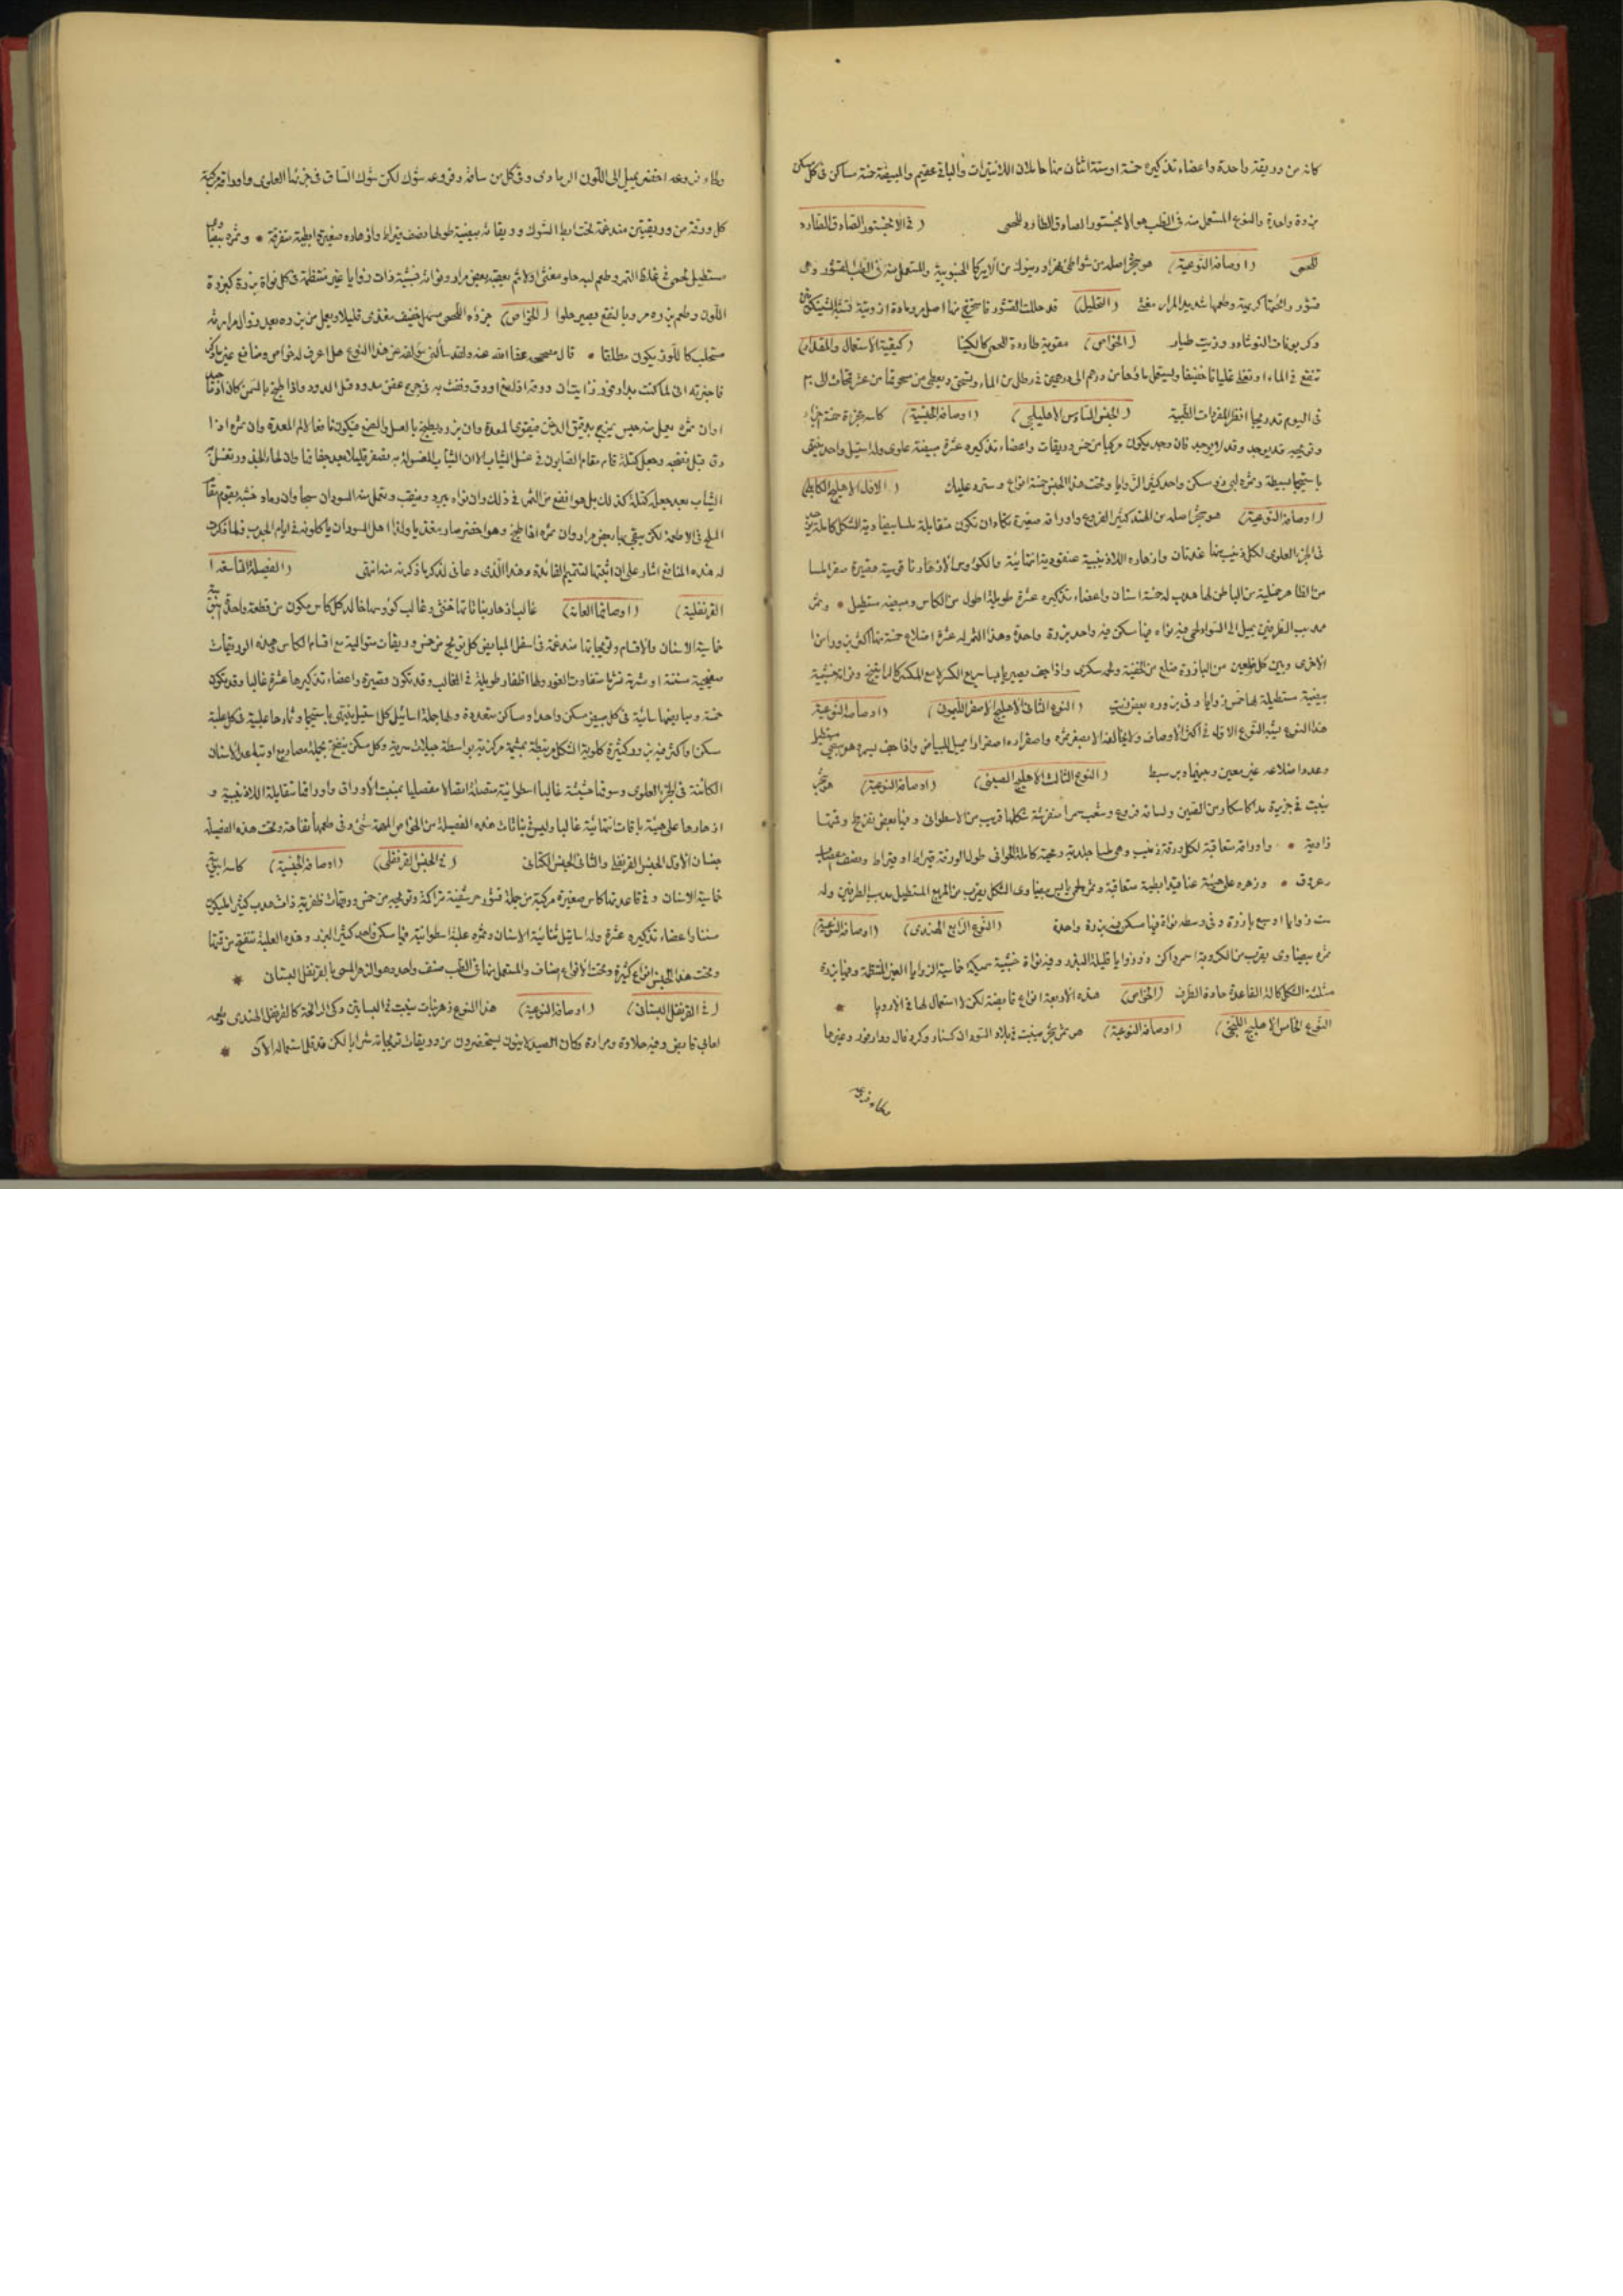 كانه من وريقة واحدة واعضاء تذكيره خمسة او ستة اثنان منها حاملان اللانتيرات والباقى عقيم والمبيضة خمسة مساكن فى كل مسكن
بزرة واحدة والنوع المستعمل منه فى الطب هو الانجستورا الصادق الطارد للحمى (فى الانجستورا الصادق الطارد
للحمى (اوصافه النوعية) هو شجر اصله من شواطئ نهر اورينوك من الاميركا الجنوبية والمستعمل منه فى الطب القشور وهى
قشور رائحتها كريهة وطعمها شديد المرار مغث (التحليل) قد حللت القشور فاستخرج منها اصل مر ومادة ازوتية
وكربونات النوشادر وزيت طيار (الخواص) مقوية طاردة للحمى كالكينا (كيفية الاستعمال والمقدار)
تنقع فى الماء او تغلى غليانا خفيفا ويستعمل ماؤها من درهم الى درهمين فى رطل من الماء وتسحق ويعطى من سحوقها من عشر قمحات الى ٣٠
فى اليوم تدريجا انظر المفردات الطبية (الجنس السادس الاهليلجى) (اوصافه الجنسية) كاسه
وتويجه قد يوجد وقد لا يوجد فان وجد يكون مركبا من خمس وريقات واعضاء تذكيره عشرة مبيضه علوى وله استيل واحد ينتهى
باستيجما بسيطة وثمره لبى ذو مسكن واحد كثير الزوايا وتحت هذا الجنس خمسة انواع وسترد عليك (الاول الاهليلج الكابلى)
(اوصافه النوعية) هو شجر اصله من الهند كثير الفروع واوراقه صغيرة تكاد ان تكون متقابلة ملسا بيضاوية الشكل كاملة
فى الجزء العلوى لكل ذنيب منها غدتان وازهاره اللاذنيبية عنقودية انتهائية والكؤوس الازهار ناقوسية قصيرة صفر ملسا
من الظاهر خملية من الباطن لها هدب له خمسة اسنان واعضاء تذكيره عشرة طويلة اطول من الكاس ومبيضه مستطيل * وثمره
مدبب الطرفين يميل الى السواد لحمى فيه نواه فيها سكن فيه واحد بزرة واحدة وهذا الثمر له عشرة اضلاع خمسة منها اكثر بروزا من
الاخرى وبين كل ضلعين من البارزة ضلع من الخفية ولحمه سكرى واذا جف يصير يابسا سريع الكسر لامع المكسر كالراتينج ونواته خشبية
بيضية مستطيلة لها خمس زوايا وفى بزوره بعض زيت (النوع الثانى الاهليلج الاصفر الليمونى) (اوصافه النوعية)
هذا النوع يشبه النوع الاول فى اكثر الاوصاف وانما يخالفه بصغر ثمره واصفراره اصفرارا يميل للبياض واذا جف مستطيل
وعدد اضلاعه غير معين وبينهما بسيط (النوع الثالث الاهليلج الصينى) (اوصافه النوعية) هو شجر
ينبت فى جزيرة مداكسكار ومن الصين ولساقه فروع وشعب سمرا متفرشة شكلها قريب من الاسطوانى وفيها بعض تفرطح وقمتها
زاوية * واوراقه متعاقبة لكل ورقة ذنيب وهى ملسا جلدية رمحية كاملة الحوافى طول الورقة قيراط او قيراط ونصف
بعروق * وزهره على هيئة عناقيد ابطية متعاقبة وثمره لحمى يابس بيضاوى الشكل يقرب من المربع المستطيل مدبب الطرفين وله
ست زوايا اوسع بارزة وفى وسطه نواة فيها مسكن فيه بزرة واحدة (النوع الرابع الهندى) (اوصافه النوعية)
ثمره بيضاوى يقرب من الكروية اسمر داكن وذو زوايا قليلة البروز وفيه نواة خشبية سميكة خماسية الزوايا الغير المنتظمة وفيها بزرة
مثلثة الشكل كالة القاعدة حادة الطرف (الخواص) هذه الاربعة انواع قابضة لكن لا استعمال لها فى الاروپا *
النوع الخامس الاهليلج اللبخى) (اوصافه النوعية) هو ثمر شجر ينبت فى بلاد السودان كسنار وكردفال ودارفور وغيرها
وطاء فروعه
وطاء فروعه اخضر يميل الى اللون الرمادى وفى كل من ساقه وفروعه شوك لكن شوك الساق فى جزئها العلوى واوراقه مركبة
كل ورقة من وريقتين مندغمة تحت ابط الشوك ووريقاته بيضية طولها نصف قيراط وازهاره صغيرة ابطية متفرقة * وثمره
مستطيل لحمى فى غلظ التمر وطعم لبه حلو مغثى اولا ثم يعقبه بعض مرار ونواته خشبية ذات زوايا غير منتظمة فى كل نواة بزرة
اللون وطعم بزره مر وبالنقع يصير حلوا (الخواص) جزءه اللحمى مسهل خفيف مغذى قليلا ويعمل من بزره بعد زوال مرارته
مستحلب كاللوز يكون مطلقا * قال مصححه عفا الله عنه ولقد سألنى مؤلفه عن هذا النوع هل اعرف له خواص ومنافع غير ما ذكر
فاخبرته انى لما كنت بدارفور رأيت ان ورقه اذا مضغ او دق ووضعت به فى جرح عفن مدود قتل الدود واذا طبخ
اوان ثمره يعمل منه حيس يمزج بدقيق الدخن فيقوى المعدة وان بزره يطبخ بالعسل فيكون نافعا لالم المعدة وان ثمره اذا
دق قبل نضجه وجعل كتلة قام مقام الصابون فى غسل الثياب الا ان الثياب المغسولة به تصفر قليلا بعد جفافها
الثياب بعد جعله كتلة كذلك بل هو انفع من الثمر فى ذلك وان نواه يبرد ويثقب ويعمل منه السودان سبحا وان رماد خشبه يقوم مقام
الملح فى الاطعمة لكن يبقى بها بعض مرار وان ثمره اذا طبخ وهو اخضر صار مغذيا ولذا اهل السودان ياكلونه فى ايام الجدب فلما ذكرت
له هذه المنافع اشار على ان اثبتها لتتميم الفائدة وهذا الذى دعانى لذكر ما ذكرته انتهى (الفصيلة التاسعة
القرنفلية) (اوصافها العامة) غالب ازهار نباتاتها خنثى وغالب كؤوسها خالد كل كاس يكون من قطعة واحدة
خماسية الاسنان والاقسام وتويجاتها مندغمة فى اسفل المبايض كل تويج من خمس وريقات متوالية مع اقسام الكاس وهذه الوريقات
او شرمة شرما متفاوت الغور ولها اظفار طويلة فى الغالب وقد تكون قصيرة واعضاء تذكيرها عشرة غالبا وقد تكون
خمسة ومبايضها سائبة فى كل مبيض مسكن واحد او مساكن متعددة ولها جملة اساتيل كل استيل ينتهى باستيجما وثمارها علبية فى كل علبة
مسكن او اكثر فيه بزور كثيرة كلوية الشكل مرتبطة بمشيمة مركزية بواسطة حبيلات سرية وكل مسكن ينفتح بجملة مصاريع او تبعا للاسنان
الكائنة فى الجزء العلوى وسوقها حشيشية غالبا اسطوانية متصلة اتصالا مفصليا بمنبت الاوراق واوراقها متقابلة اللاذنيبية و
ازهارها على هيئة باقات انتهائية غالبا وليس فى نباتات هذه الفصيلة من الخواص المهمة شئ وفى طعمها تفاهة وتحت هذه الفصيلة
جنسان الاول الجنس القرنفلى والثانى الجنس الكتانى (فى الجنس القرنفلى) (اوصافه الجنسية) كاسه
خماسية الاسنان وفى قاعدتها كاس صغيرة مركبة من جملة قشور حرشفية متراكمة وتويجه من خمس وريقات ظفرية ذات هدب
مسننا واعضاء تذكيره عشرة وله اساتيل ثنائية الاسنان وثمره علبة اسطوانية فيها مسكن واحد كثير البزر وهذه العلبة تنفتح من قمتها
وتحت هذا الجنس انواع كثيرة وتحت الانواع اصناف والمستعمل منها فى الطب صنف واحد وهو الزهر المسمى بالقرنفل البستانى *
(فى القرنفل البستانى) (اوصافه النوعية) هذا النوع زهر نبات ينبت فى البساتين وذكى الرائحة كالقرنفل الهندى وطعمه
لعابى قابض وفيه حلاوة ومرارة وكان الصيدلانيون يستحضرون من وريقات تويجاته شرابا لكن قد قل استعماله الآن *